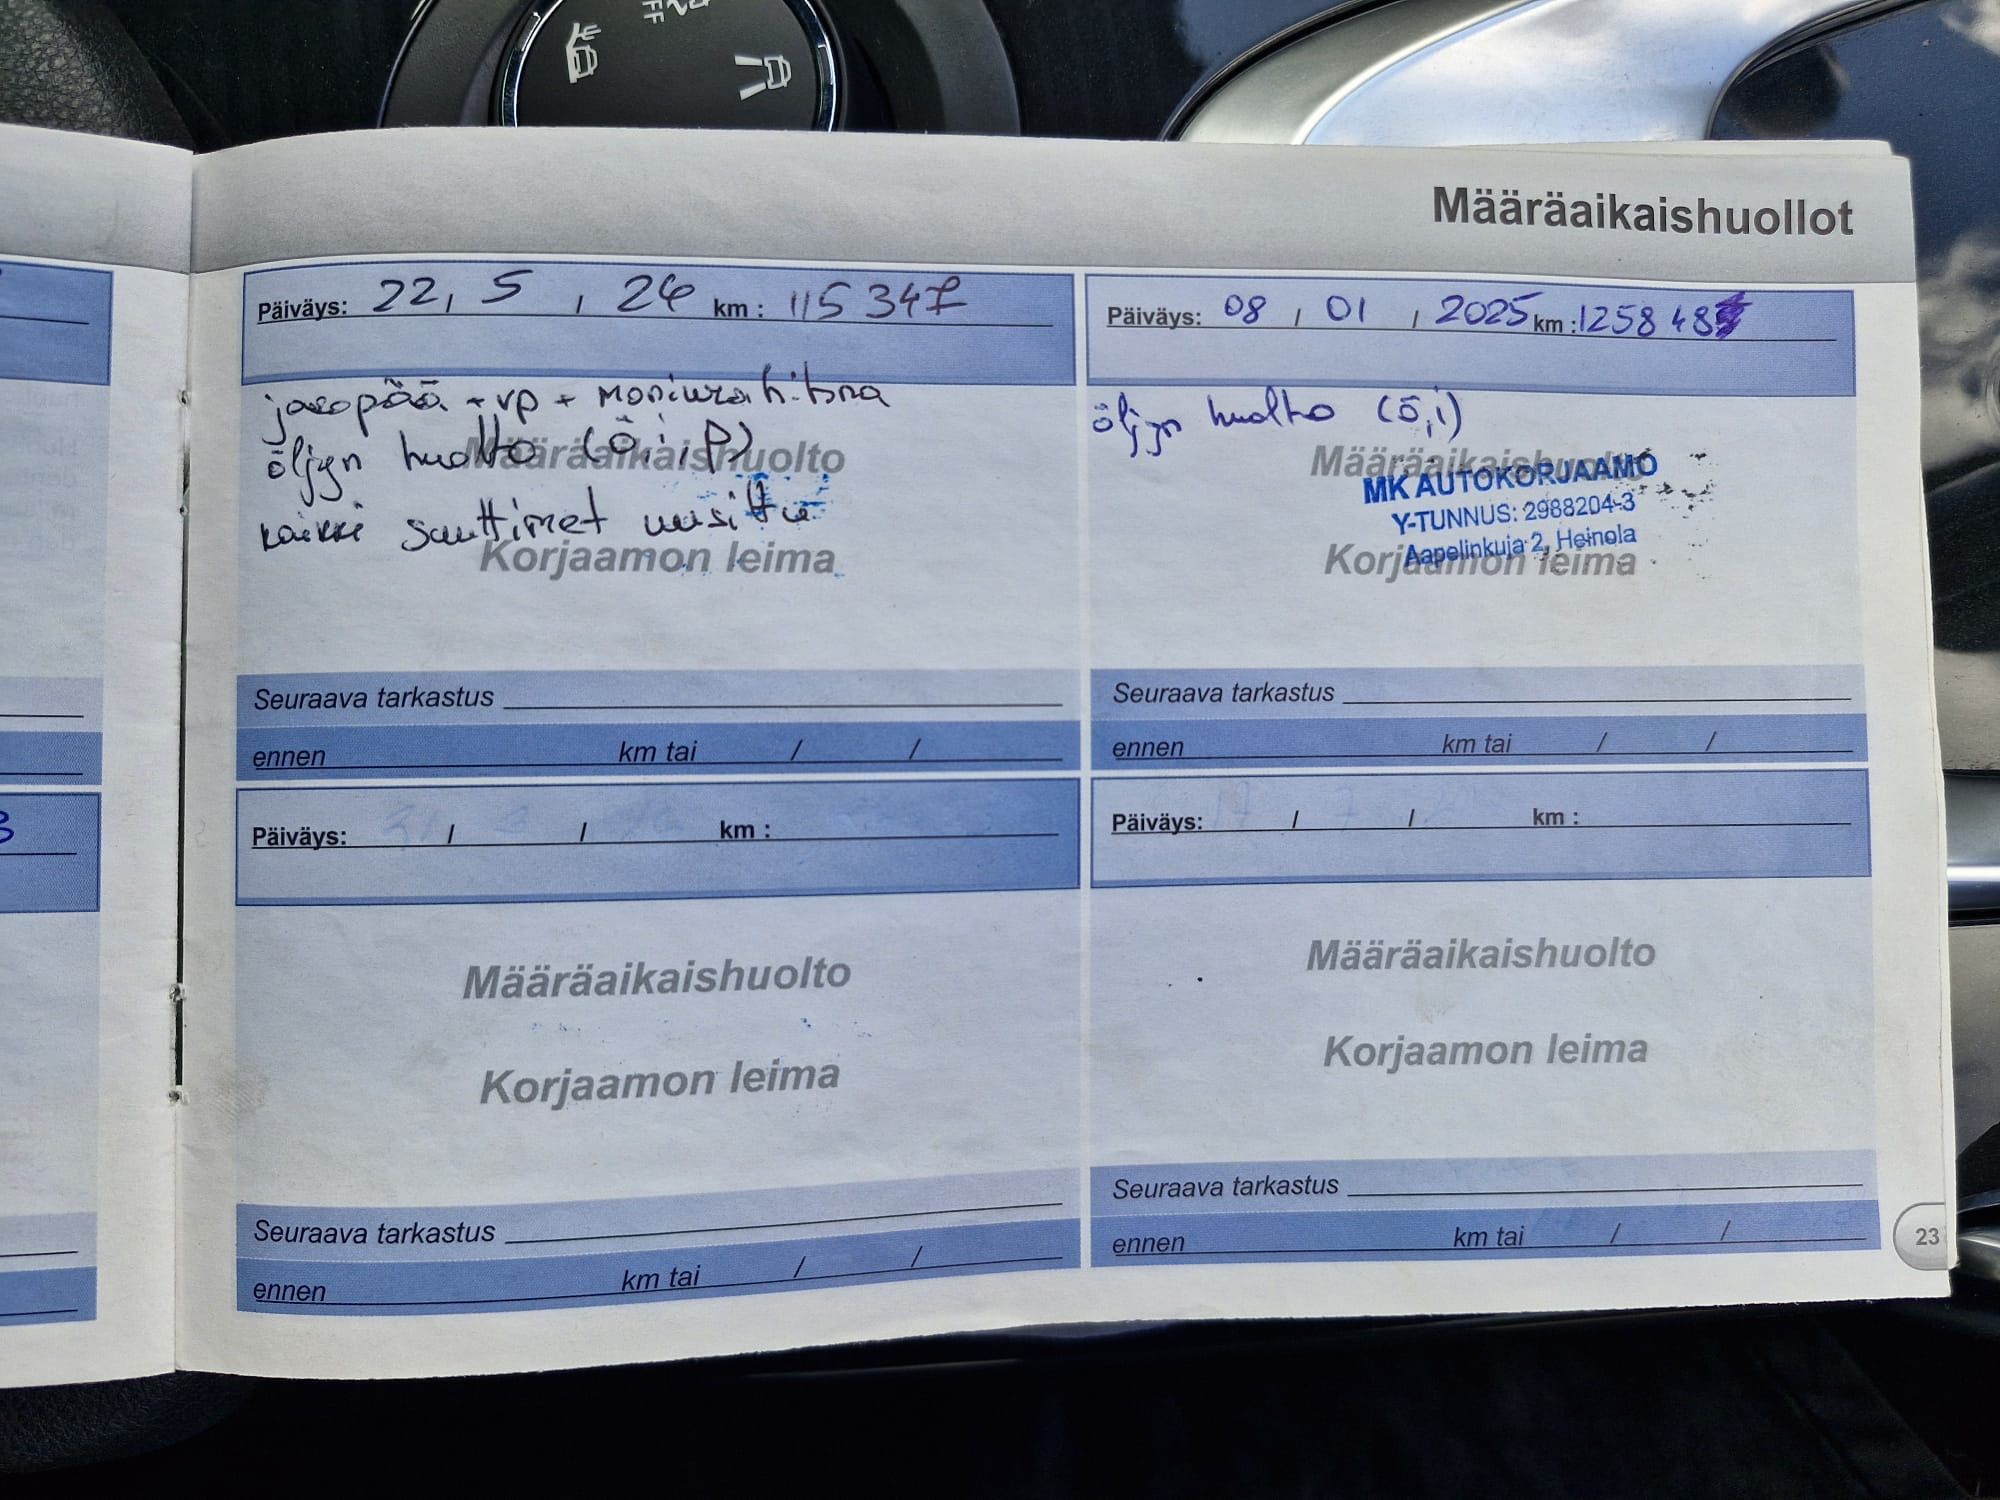 Määräaikaishuollot
Päiväys: 22, 5 , 24 km : 115 347
jakopää + vp + moniurahihna
öljyn huolto (ö, i, p)
Määräaikaishuolto
kaikki suuttimet uusittu
Korjaamon leima
Seuraava tarkastus
ennen km tai / /
Päiväys: 08 / 01 , 2025 km : 125848
öljyn huolto (ö, i)
Määräaikaishuolto
MK AUTOKORJAAMO
Y-TUNNUS: 2988204-3
Aapelinkuja 2, Heinola
Korjaamon leima
Seuraava tarkastus
ennen km tai / /
Päiväys: / / km :
Määräaikaishuolto
Korjaamon leima
Seuraava tarkastus
ennen km tai / /
Päiväys: / / km :
Määräaikaishuolto
Korjaamon leima
Seuraava tarkastus
ennen km tai / /
23